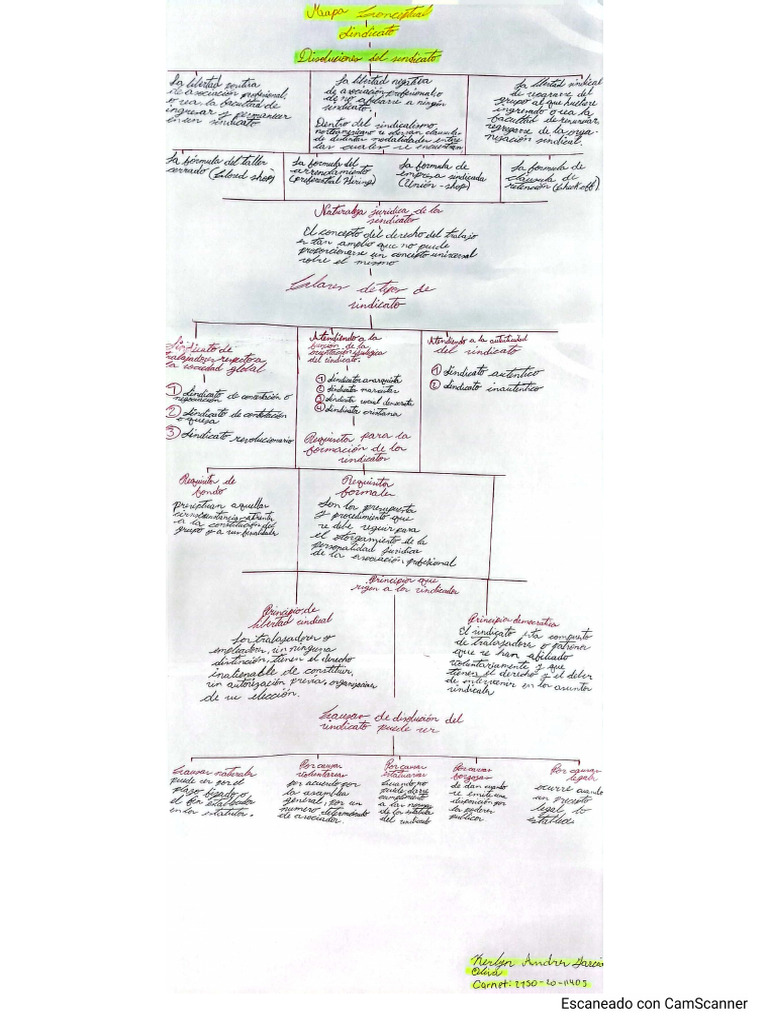 Mapa Conceptual
Sindicato
Disoluciones del sindicato
La libertad contra
de asociación profesional,
o sea la facultad de
ingresar y permanecer
en un sindicato
La libertad negativa
de asociación profesional o
de no afiliarse a ningún
sindicato.
Dentro del sindicalismo
norteamericano se
de distintas modalidades entre
las cuales se encuentran
La libertad sindical
de
grupo al que hubiere
ingresado o sea la
facultad de renunciar,
de la orga-
nización sindical.
La fórmula del taller
cerrado (Closed shop)
La fórmula del
arrendamiento
(preferential Hiring)
La fórmula de
empresa sindicada
(Unión-shop)
La fórmula de
cláusula de
retención (Chuck off)
Naturaleza jurídica de los
sindicatos
El concepto del derecho del trabajo
es tan amplio que no puede
proporcionarse un concepto universal
sobre el mismo
Clases de tipos de
sindicato
Sindicato de
trabajadores respecto a
la sociedad global
① Sindicato de contestación o
negociación
② Sindicato de contestación
o
③ Sindicato revolucionario
Atendiendo a la
función de la
ideológica
del sindicato.
① Sindicatos anarquista
② Sindicato marxista
③ Sindicato social democrata
④ Sindicato cristiana
Atendiendo a la autenticidad
del sindicato
① Sindicato autentico
② Sindicato inautentico
Requisitos para la
formación de los
sindicatos
Requisitos de
fondo
aquellas
circunstancias
a la constitución del
grupo y a sus finalidades
Requisitos
formales
Son los presupuestos
y procedimiento que
se debe seguir para
el otorgamiento de la
personalidad jurídica
de la asociación profesional
Principios que
rigen a los sindicatos
Principio de
libertad sindical
Los trabajadores y
empleadores, sin ninguna
distinción, tienen el derecho
inalienable de constituir,
sin autorización previa, organizaciones
de su elección.
Principio democratico
El sindicato esta compuesto
de trabajadores o patrones
que se han afiliado
voluntariamente y que
tienen el derecho y el deber
de intervenir en los asuntos
sindicales
Causas de disolución del
sindicato puede ser
Causas naturales
puede ser por el
plazo fijado o
el fin establecido
en los estatutos.
Por causas
voluntarias
por acuerdo por
la asamblea
general, por un
numero determinado
de asociados.
Por causas
estatutarias
Cuando no
puede darse
cumplimiento
a las normas
de los estatutos
del sindicato
Por causas
forzosas
se dan cuando
se emite una
disposición por
los poderes
publicos
Por causas
legales
ocurre cuando
un precepto
legal lo
establece
Kerlyn Andrea Garcia
Oliva
Carnet: 2750-20-11405
Escaneado con CamScanner